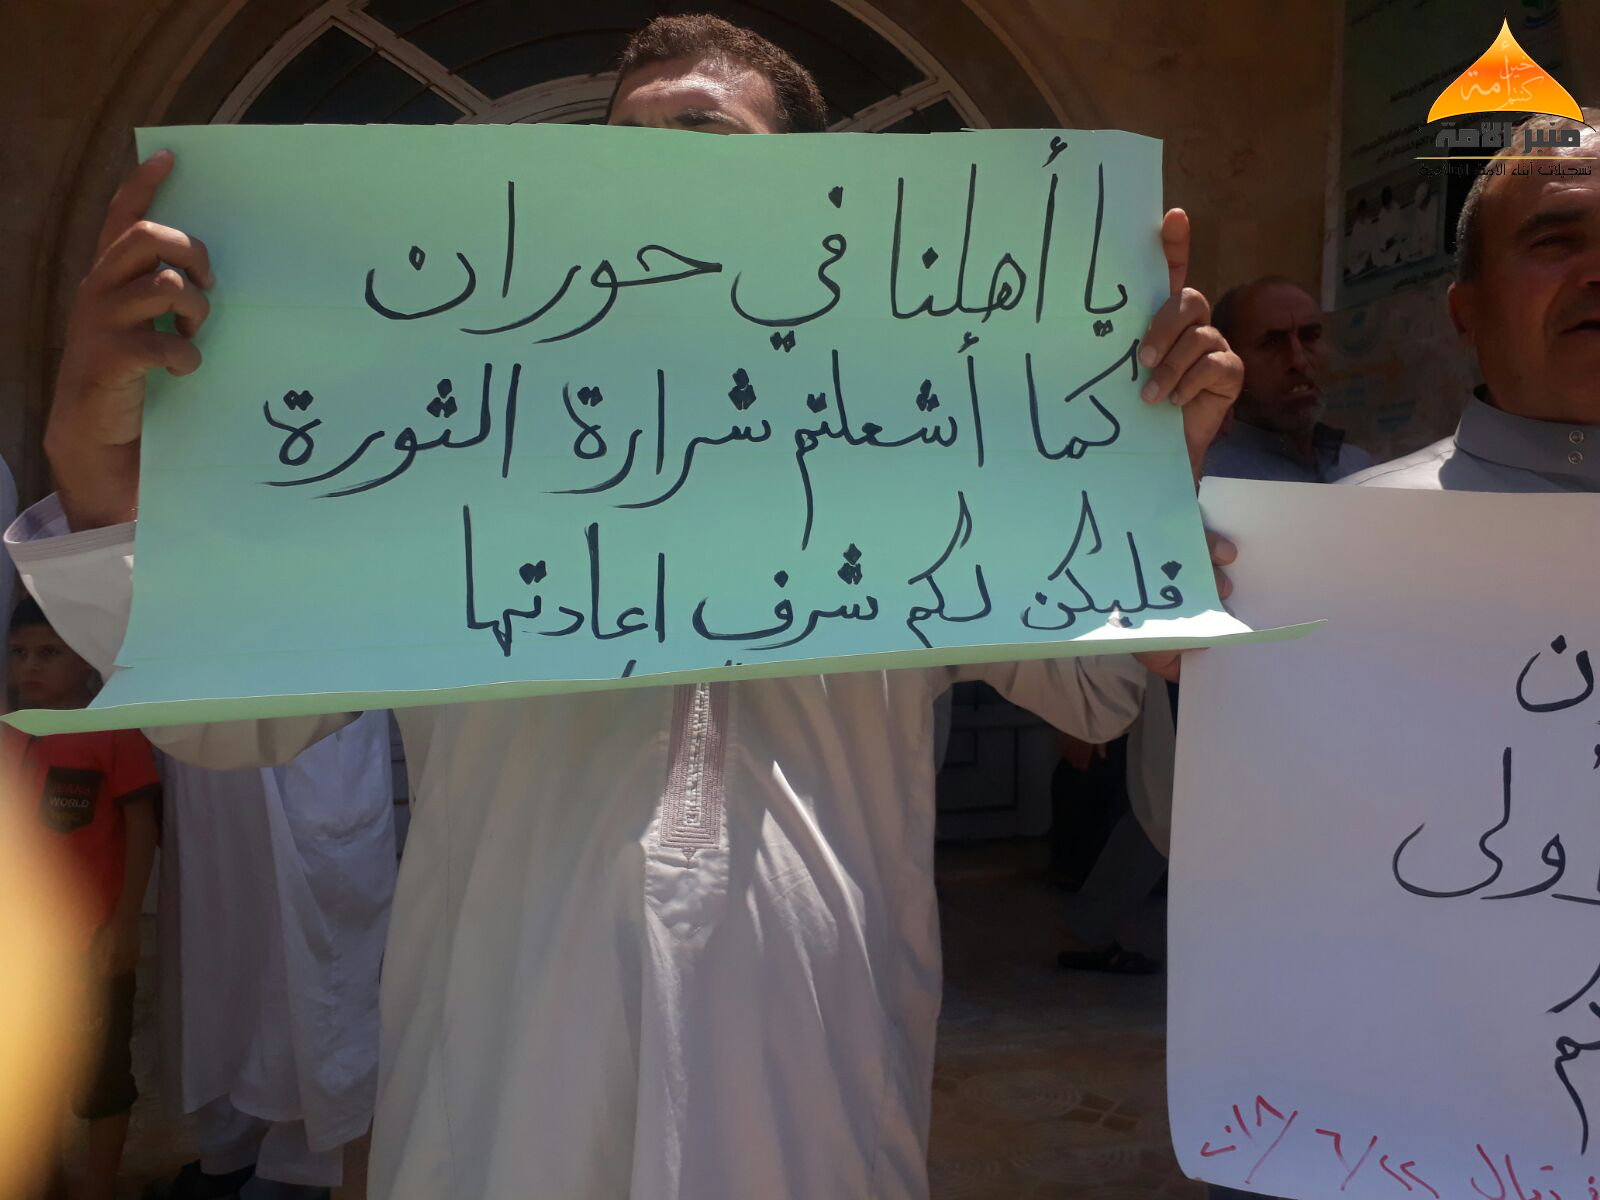 يا أهلنا في حوران
كما أشعلتم شرارة الثورة
فليكن لكم شرف اعادتها
ن
أولى
٢٢/٦/٢٠١٨
كنتم خير أمة
منبر الأمة
تسجيلات أبناء الأمة الإسلامية
JEANS
WORLD